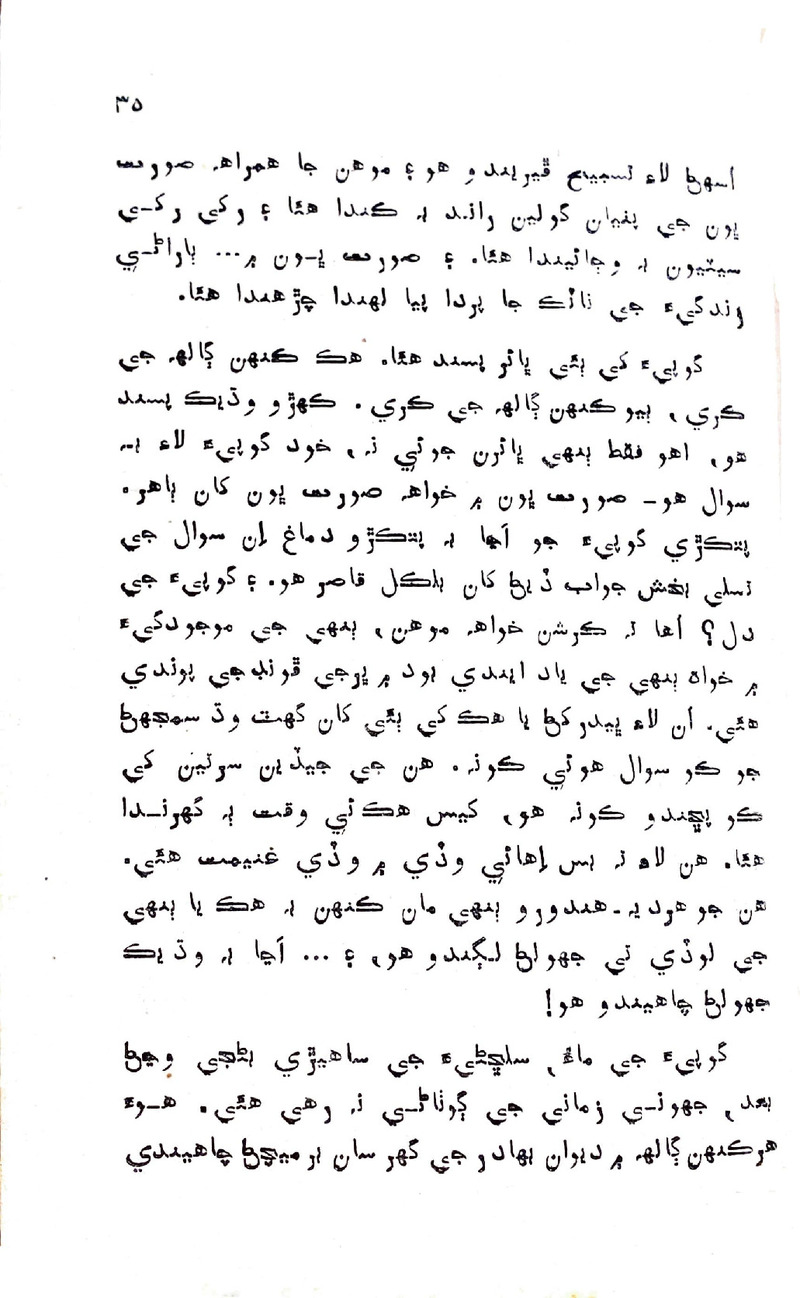 ٣٥
اسهڻ لاءِ تسبيح ڦيريندو هو ۽ موهن جا همراهه صورت
ڀون جي ٻنيان گولين راند بہ ڪندا هئا ۽ رکي رکي
سيٽيون بہ وڄائيندا هئا. ۽ صورت ڀون ۾... ٻاراڻي
زندگيءَ جي ناٽڪ جا پردا پيا لهندا چڙهندا هئا.
گوپيءَ کي ٻئي ڀائر پسند هئا. هڪ ڪنهن ڳالهہ جي
ڪري، ٻيو ڪنهن ڳالهہ جي ڪري. ڪهڙو وڌيڪ پسند
هو، اهو فقط ٻنهي ڀائرن جو ئي نہ، خود گوپيءَ لاءِ بہ
سوال هو- صورت ڀون ۾ خواهہ صورت ڀون کان ٻاهر.
پتڪڙي گوپيءَ جو اڃا بہ پتڪڙو دماغ اِن سوال جي
تسلي بخش جواب ڏيڻ کان بلڪل قاصر هو. ۽ گوپيءَ جي
دل؟ اُها تہ ڪرشن خواهہ موهن، ٻنهي جي موجودگيءَ
۾ خواه ٻنهي جي ياد ايندي ئود ۾ ڀرجي ڦونڊجي پوندي
هئي. اُن لاءِ ڀيدرکڻ يا هڪ کي ٻئي کان گهٽ وڌ سمجهڻ
جو ڪو سوال هوئي ڪونہ. هن جي جيڏين سرتين کي
ڪو پڇندو ڪونہ هو، کيس هڪئي وقت ٻہ گهرندا
هئا. هن لاءِ تہ بس اِهائي وڏي ۾ وڏي غنيمت هئي.
هن جو هرديہ-هندورو ٻنهي مان ڪنهن بہ هڪ يا ٻنهي
جي لوڏي تي جهولڻ لڳندو هو، ۽ ... اڃا بہ وڌيڪ
جهولڻ چاهيندو هو!
گوپيءَ جي ماءُ، سلڇڻيءَ جي ساهيڙي بڻجي وڃڻ
بعد، جهوني زماني جي ڳوٺاڻي نہ رهي هئي. هوءَ
هرڪنهن ڳالهہ ۾ ديوان بهادر جي گهر سان برميچڻ چاهيندي